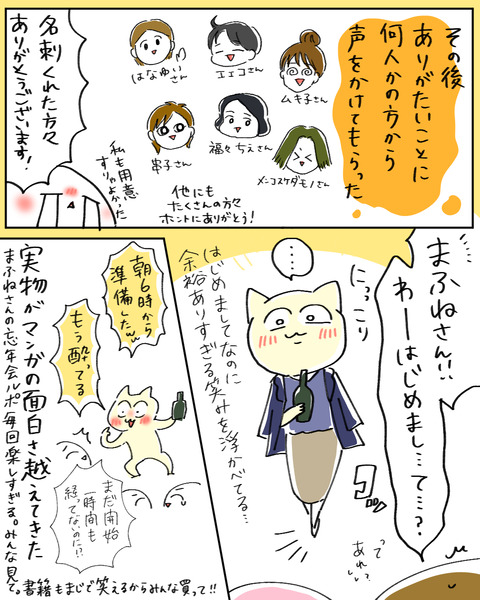 その後
ありがたいことに
何人かの方から
声をかけてもらった
はなゆいさん
エェコさん
ムキ子さん
串子さん
福々ちえさん
メンコスケダモノさん
他にも
たくさんの方々
ホントにありがとう!
名刺くれた方々
ありがとうございます!
私も用意
すりゃよかった
まふねさん!!
わーはじめまし…て…?
って
あれ…
・・・・
にっこり
はじめましてなのに
余裕ありすぎる笑みを浮かべてる…
朝6時から
準備したww
もう酔ってる
まだ開始
一時間も
経ってないのに!?
実物がマンガの面白さ越えてきた
まふねさんの忘年会ルポ毎回楽しすぎる。みんな見て。
書籍もまじで笑えるからみんな買って!!